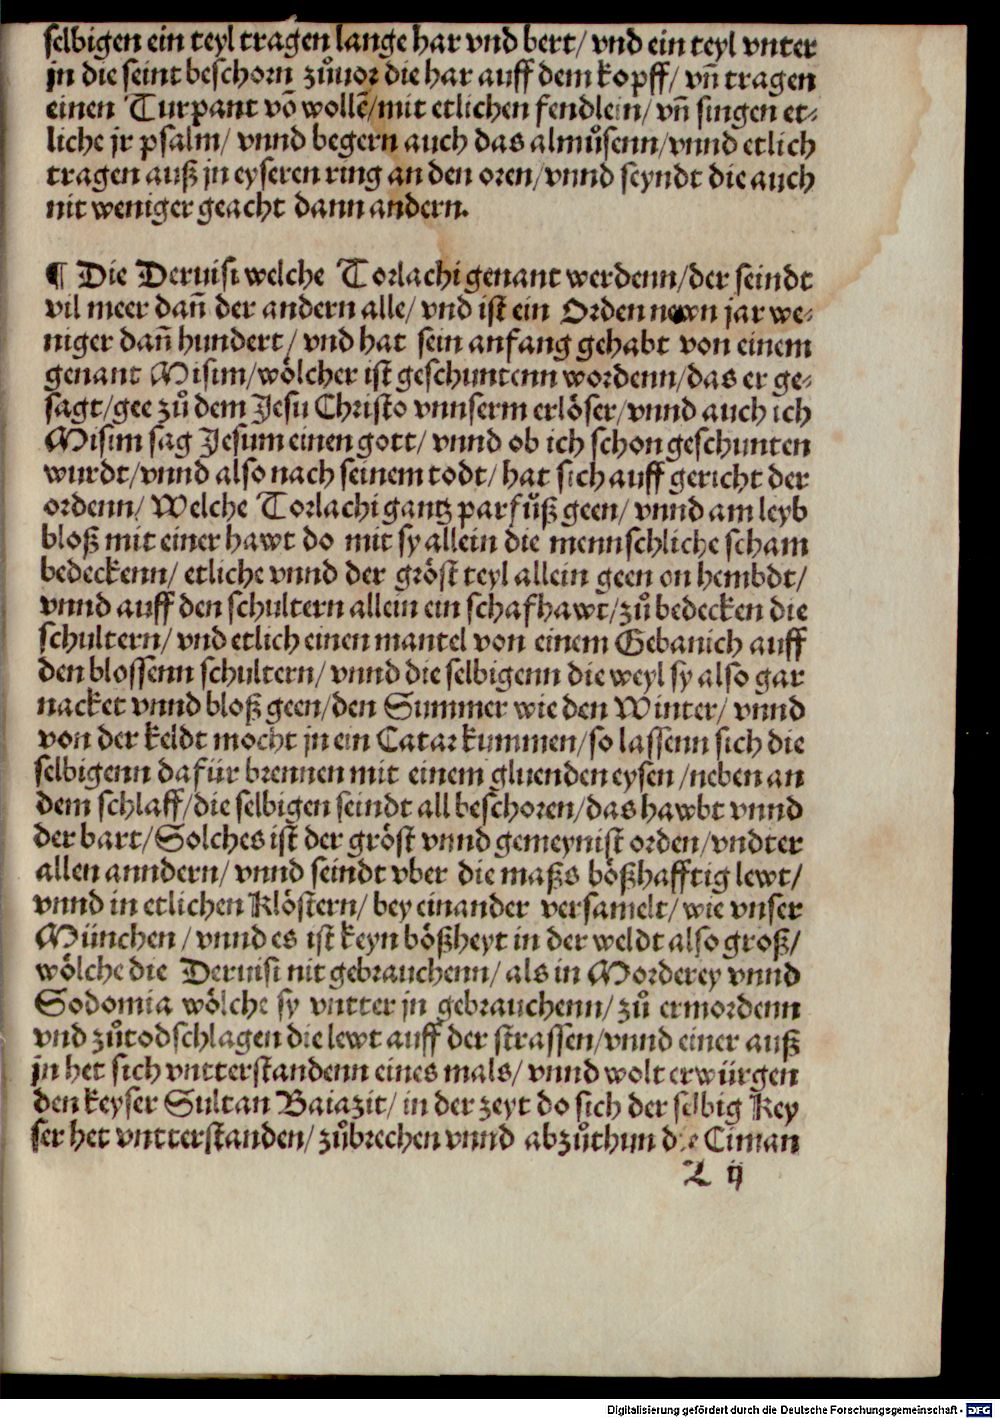 selbigen ein teyl tragen lange har vnd bert/ vnd ein teyl vnter
jn die seint beschorn zůuor die har auff dem kopff/ vñ tragen
einen Turpant võ wollẽ/mit etlichen fendlein/ vñ singen et⸗
liche jr psalm/ vnnd begern auch das almůsenn/vnnd etlich
tragen auß jn eyseren ring an den oren/vnnd seyndt die auch
nit weniger geacht dann andern.
¶ Die Deruisi welche Torlachi genant werdenn/der seindt
vil meer dañ der andern alle/ vnd ist ein Orden newn jar we⸗
niger dañ hundert/ vnd hat sein anfang gehabt von einem
genant Misim/wölcher ist geschuntenn wordenn/das er ge⸗
sagt/gee zů dem Jesu Christo vnnserm erlöser/vnnd auch ich
Misim sag Jesum einen gott/ vnnd ob ich schon geschunten
wurdt/vnnd also nach seinem todt/ hat sich auff gericht der
ordenn/ Welche Torlachi gantz parfůß geen/ vnnd am leyb
bloß mit einer hawt do mit sy allein die mennschliche scham
bedeckenn/ etliche vnnd der gröst teyl allein geen on hembdt/
vnnd auff den schultern allein ein schafhawt/zů bedecken die
schultern/ vnd etlich einen mantel von einem Gebanich auff
den blossenn schultern/ vnnd die selbigenn die weyl sy also gar
nacket vnnd bloß geen/den Summer wie den Winter/ vnnd
von der keldt mocht jn ein Catar kummen/so lassenn sich die
selbigenn dafür brennen mit einem gluenden eysen/neben an
dem schlaff/die selbigen seindt all beschoren/das hawbt vnnd
der bart/Solches ist der gröst vnnd gemeynist orden/vndter
allen anndern/ vnnd seindt vber die maßs bößhafftig lewt/
vnnd in etlichen Klöstern/ bey einander versamelt/ wie vnser
München/ vnnd es ist keyn bößheyt in der weldt also groß/
wölche die Deruisi nit gebrauchenn/ als in Morderey vnnd
Sodomia wölche sy vntter jn gebrauchenn/ zů ermordenn
vnd zůtodschlagen die lewt auff der strassen/vnnd einer auß
jn het sich vntterstandenn eines mals/ vnnd wolt erwürgen
den keyser Sultan Baiazit/ in der zeyt do sich der selbig Key
ser het vntterstanden/ zůbrechen vnnd abzůthun die Ciman
L ij
Digitalisierung gefördert durch die Deutsche Forschungsgemeinschaft - DFG